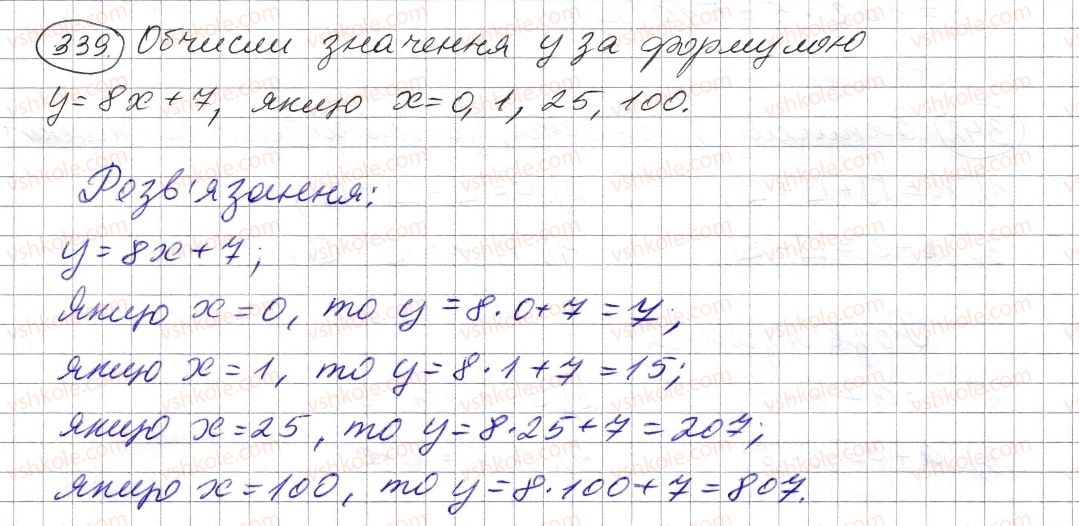 339. Обчисли значення y за формулою
y = 8x + 7, якщо x = 0, 1, 25, 100.
Розв'язання:
y = 8x + 7;
Якщо x = 0, то y = 8 · 0 + 7 = 7;
якщо x = 1, то y = 8 · 1 + 7 = 15;
якщо x = 25, то y = 8 · 25 + 7 = 207;
якщо x = 100, то y = 8 · 100 + 7 = 807.